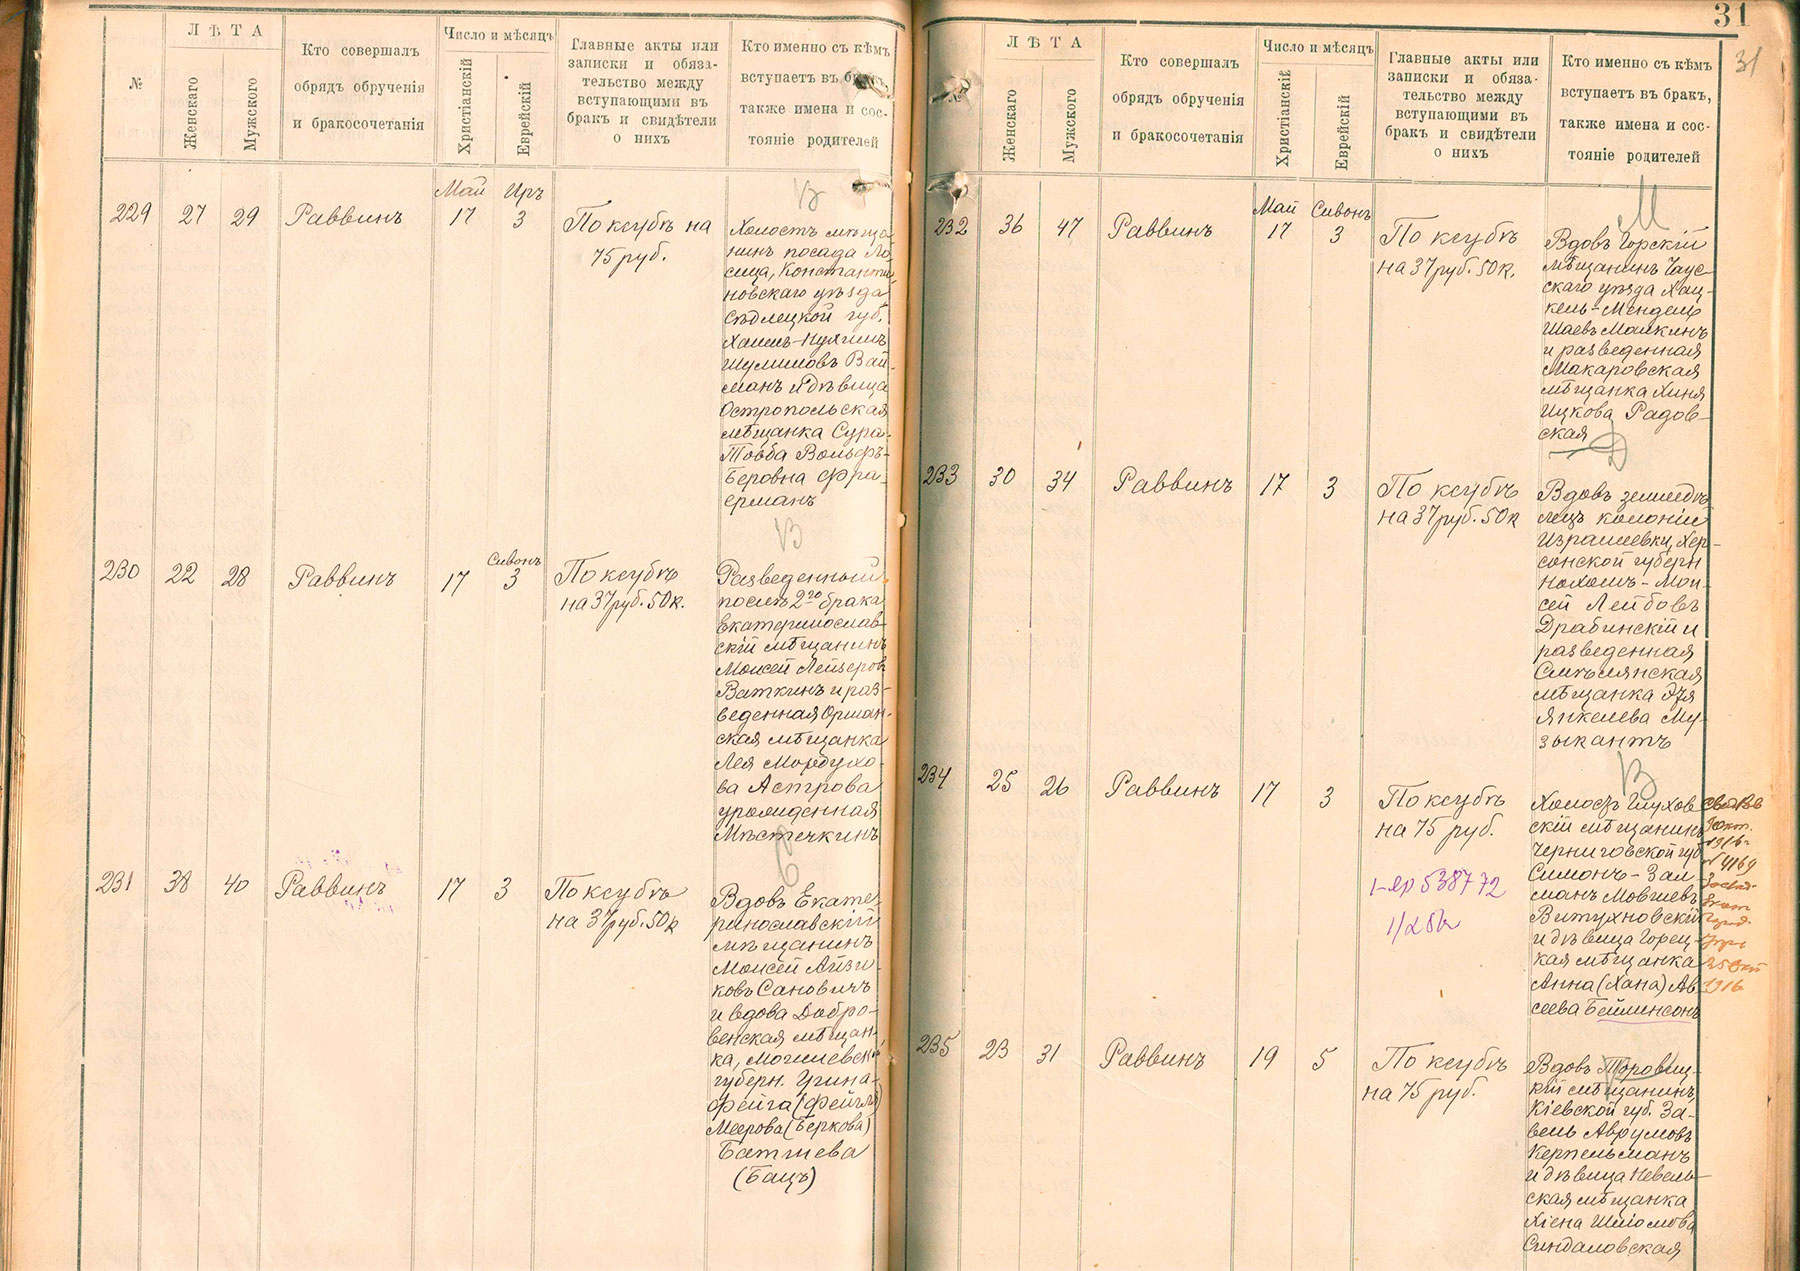 №
ЛѢТА
Женскаго
Мужского
Кто совершалъ
обрядъ обрученія
и бракосочетанія
Число и мѣсяцъ
Христіанскій
Еврейскій
Главные акты или
записки и обяза-
тельство между
вступающими въ
бракъ и свидѣтели
о нихъ
Кто именно съ кѣмъ
вступаетъ въ бракъ,
также имена и сос-
тояніе родителей
Май Иръ
229 27 29 Раввинъ 17 3
По ксубѣ на
75 руб.
Холостъ мѣща-
нинъ посада Ло-
сица, Константи-
новскаго уѣзда
Сѣдлецкой губ.
Хаимъ-Нухимъ
Шулимовъ Вай-
манъ и дѣвица
Остропольская
мѣщанка Сура-
Товба Вольфъ-
Беровна Фри-
ерманъ
Сивонъ
230 22 28 Раввинъ 17 3
По ксубѣ
на 37 руб. 50 к.
Разведенный
послѣ 2го брака
Екатеринослав-
скій мѣщанинъ
Моисей Лейзеров
Ваткинъ и раз-
веденная Оршан-
ская мѣщанка
Лея Мордухо-
ва Астрова
урожденная
Мѣстечкинъ
231 38 40 Раввинъ 17 3
По ксубѣ
на 37 руб. 50 к
Вдовъ Екате-
ринославскій
мѣщанинъ
Моисей Айзи-
ковъ Сановичъ
и вдова Добро-
венская мѣщан-
ка, Могилевск.
губерн. Ψина-
Фейга (Фейгля)
Меерова (Беркова)
Батшева
(Бацъ)
31
31
№
ЛѢТА
Женскаго
Мужского
Кто совершалъ
обрядъ обрученія
и бракосочетанія
Число и мѣсяцъ
Христіанскій
Еврейскій
Главные акты или
записки и обяза-
тельство между
вступающими въ
бракъ и свидѣтели
о нихъ
Кто именно съ кѣмъ
вступаетъ въ бракъ,
также имена и сос-
тояніе родителей
Май Сивонъ
232 36 47 Раввинъ 17 3
По ксубѣ
на 37 руб. 50 к.
Вдовъ Горскій
мѣщанинъ Чаус-
скаго уѣзда Хац-
кель-Мендель
Шаевъ Малкинъ
и разведенная
Макаровская
мѣщанка Хиня
Ицкова Радов-
ская
233 30 34 Раввинъ 17 3
По ксубѣ
на 37 руб. 50 к
Вдовъ земледѣ-
лецъ колоніи
Израилевки, Хер-
сонской губерн
Нохомъ-Мои-
сей Лейбовъ
Драбинскій и
разведенная
Смѣлянская
мѣщанка Эдя
Янкелева Му-
зыкантъ
234 25 26 Раввинъ 17 3
По ксубѣ
на 75 руб.
538772
Холостъ Глухов-
скій мѣщанинъ
Черниговской губ
Симонъ-Зал-
манъ Мовшевъ
Витухновскій
и дѣвица Горец-
кая мѣщанка
Анна (Хана) Ав-
сеева Бейлинсонъ
1916 г
№ 4169
1916
235 23 31 Раввинъ 19 5
По ксубѣ
на 75 руб.
Вдовъ Торовиц-
кій мѣщанинъ,
Кіевской губ. За-
вель Аврумовъ
Керпельманъ
и дѣвица Невель-
ская мѣщанка
Хіена Шліомова
Синдаловская